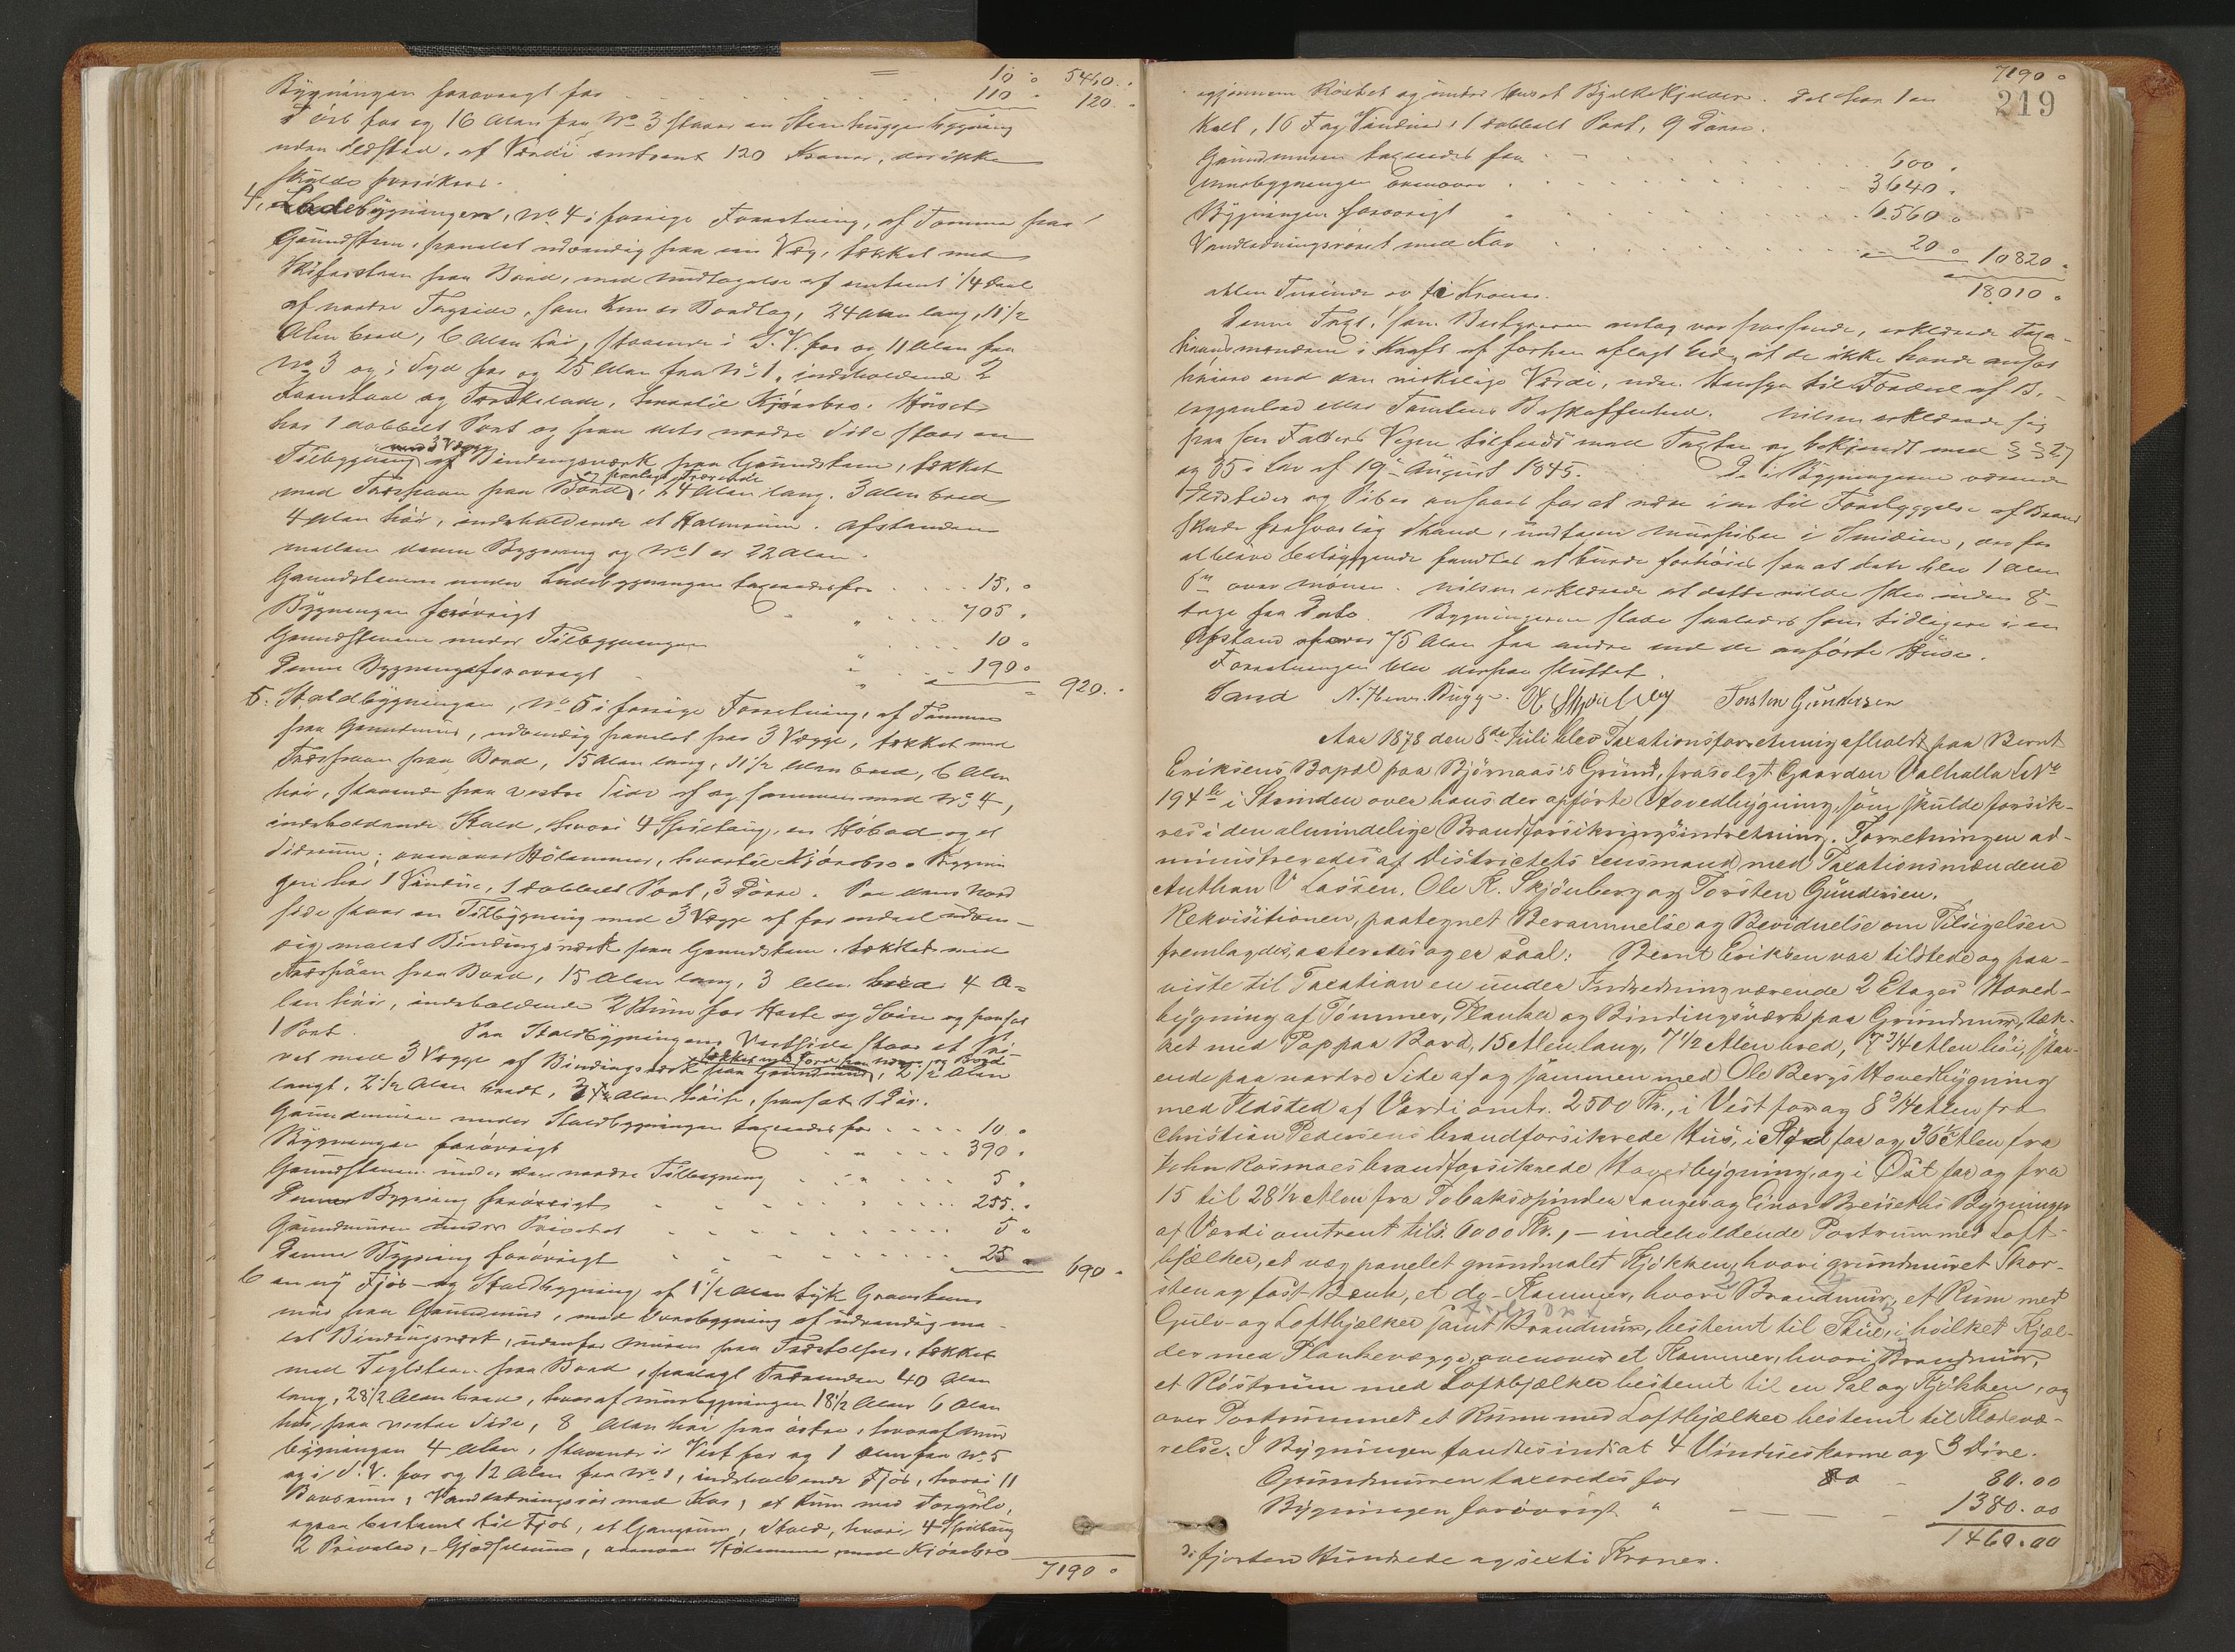 10 " 5460. "
Bygningen forøvrigt for 110 " 120. "
I Øst for og 16 Alen fra No 3 staar en Steenhuggerbygning
uden Ildsted, af Værdi omtrent 120 Kroner, der ikke
skulde forsikres.
4, Ladebygningen, No 4 i forrige Forretning, af Tømmer paa
Grundsteen, panelet udvendig paa en Væg, tækket med
Skifersteen paa Bord, med Undtagelse af omtrent 1/4 Deel
af nordre Tagside, som kun er Bordtag, 24 Alen lang, 11 1/2
Alen bred, 6 Alen høi, staaende i S.V. for og 11 Alen fra
No 3 og i Syd for og 25 Alen fra No 1, indeholdende 2
Kornstaal og Tærskelade, hvortil Kjørebro. Huset
har 1 dobbelt Port og paa dets nordre Side staar en
Tilbygning med 3 Vægge af Bindingsværk paa Grundsteen, tækket
med Træspaan paa Bord, 24 Alen lang, 3 Alen bred
4 Alen høi, indeholdende et Halmrum. Afstanden
mellem denne Bygning og No 1 er 22 Alen.
Grundstenene under Ladebygningen taxeredes for 15. "
Bygningen forøvrigt " 705 "
Grundstenene under Tilbygningen 10 "
Denne Bygning forøvrigt " 190 " 920. "
5. Staldbygningen, No 5 i forrige Forretning, af Tømmer
paa Grundmur, udvendig panelet paa 3 Vægge, tækket med
Træspaan paa Bord, 15 Alen lang, 11 1/2 Alen bred, 6 Alen
høi, staaende paa vestre Side af og sammen med No 4,
indeholdende Stald, hvori 4 Spiltaug, en Høbod og et
ovenover Hølemmer, hvortil Kjørebro. Bygnin
gen har 1 Vindue, 1 dobbelt Port, 3 Døre. Paa dens Nord
side staar en Tilbygning med 3 Vægge af for endeel udven-
dig malet Bindingsværk paa Grundsteen, tækket med
Træspaan paa Bord, 15 Alen lang, 3 Alen bred 4 A-
len høi, indeholdende 2 Rum for Heste og Svin og paasat
1 Port. Paa Staldbygningens Vestside staar et Pri-
vet med 3 Vægge af Bindingsværk paa Grundmur, 2 1/2 Alen
langt, 2 1/2 Alen bredt, Alen høit, paasat 1 Dør.
Grundmuren under Staldbygningen taxeredes for 10 "
Bygningen forøvrigt " 390 "
Grundstenene under den nordre Tilbygning " 5 "
Denne Bygning forøvrigt " 255. "
Grundmuren under Privetet 5 "
Denne Bygning forøvrigt 25 " 690 "
6 en ny Fjøs- og Staldbygning af 1 1/2 Alen tyk Graasteens
mur paa Grundmur, med Overbygning af udvendig ma-
let Bindingsværk, udenfor Muren paa Træstolper, tækket
med Teglsteen paa Bord, paalagt Trærender 40 Alen
lang, 28 1/2 Alen bred, hvoraf Murbygningen 18 1/2 Alen 6 Alen
høi paa vestre Side, 8 Alen høi paa østre, hvoraf Mur
bygningen 4 Alen, staaende i Vest for og 1 Alen fra No 5
og i S.V. for og 12 Alen fra No 1, indeholdende Fjøs, hvori 11
Baasrum, Vandledningsrør med Kar, et Rum med
ogsaa bestemt til Fjøs, et Gangrum, Stald, hvori 4 Spiltaug
2 Priveter, Gjødselrum, ovenover Hølemmer med Kjørebro
7190 "
7190 "
219
igjennem Røstet og under Huset Kjelder. Det har 1 en
kelt, 16 Fag Vinduer, 1 dobbelt Port, 9 Døre.
Grundmuren taxeredes for 600 "
Murbygningen ovenover 3640 "
Bygningen forøvrigt " 6560 "
Vandledningsrøret med Kar 20 " 10820 "
18010 "
atten Tusinde og ti Kroner.
Denne Taxt, som Bestyreren antog var passende, erklærede Taxa-
tionsmændene i Kraft af forhen aflagt Eed, at de ikke havde ansat
høiere end den virkelige Værdi, uden Hensyn til Fordeel af B-
liggenhed eller Tomtens Beskaffenhed. Nilsen erklærede sig
paa sin Faders Vegne tilfreds med Taxten og bekjendt med §§ 27
og 35 i Lov af 19de August 1845. De i Bygningerne værende
Ildsteder og Piber ansaaes for at være i en til Forebyggelse af Brand
skade forsvarlig Stand, undtagen Muurpiben i Smidien, der for
at blive betryggende fandtes at burde forhøies saa at den blev 1 Alen
6" over Mønen. Nilsen erklærede at dette vilde skee inden 8
Dage fra Dato. Bygningerne stode saaledes som tidligere i en
Afstand af over 75 Alen fra andre end de anførte Huse.
Forretningen blev derpaa sluttet
Sand N. Henr. Bügge. O Skjønberg Torsten Gundersen
Aar 1878 den 8de Juli blev Taxationsforretning afholdt paa Bernt
Eriksens Bopæl paa Bjørnaasis Grund, frasolgt Gaarden Valhalla L No
194 b i Strinden over hans der opførte Hovedbygning, som skulde forsik-
res i den almindelige Brandforsikringsindretning. Forretningen ad-
ministreredes af Districtets Lensmand med Taxationsmændene
Anthon V Lassen, Ole K. Skjönberg og Torsten Gundersen.
Rekvisitionen, paategnet Berammelse og Bevidnelse om Tilsigelsen
fremlagdes, acteredes og er saal: Bernt Eriksen var tilstede og paa-
viste til Taxation en under Indredning værende 2 Etages Hoved-
bygning af Tømmer, Planker og Bindingsværk paa Grundmur, tæk-
ket med Pap paa Bord, 15 Alen lang, 7 1/2 Alen bred, 7 3/4 Alen høi, staa-
ende paa nordre Side af og sammen med Ole Bergs Hovedbygning
med Ildsted af Værdi omtr. 2500 Kr., i Vest for og 8 3/4 Alen fra
Christian Pedersens brandforsikrede Hus, i Nord for og 36 1/2 Alen fra
John Rosmoes brandforsikrede Hovedbygning, og i Øst for og fra
15 til 28 1/2 Alen fra Tobakspinder Langes og Einar Bresseths Bygninger
af Værdi omtrent tils. 6000 Kr., - indeholdende Portrum med Loft-
bjælker, et væg panelet grundmalet Kjøkken, hvori grundmuret Skor-
sten og fast Bænk, et do- Kammer, hvori Brandmur, et Rum med
Gulv- og Loftbjælker samt Brandmur, bestemt til Stue, i hvilket Kjæl-
der med Plankevægge, ovenover et Kammer, hvori Brandmur,
et Röstrum med Loftbjælker bestemt til en Sal og Kjøkken, og
over Portrummet et Rum med Loftbjælker bestemt til Kladevæ-
relse. I Bygningen fandtes indsat 4 Vindueskarme og 3 Døre.
Grundmuren taxeredes for 80.00
Bygningen forøvrigt " 1380.00
1460.00
fjorten Hundrede og sexti Kroner.